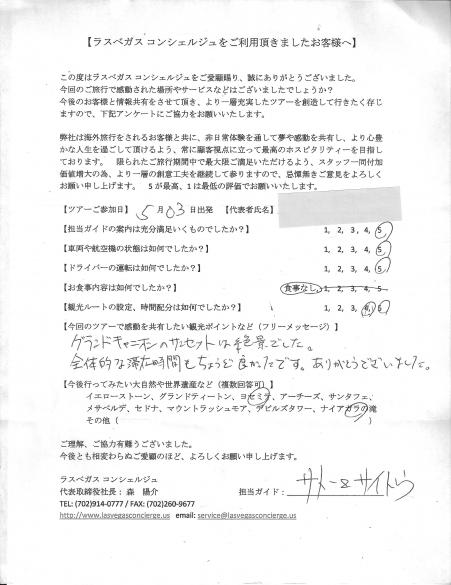 【ラスベガス コンシェルジュをご利用頂きましたお客様へ】
この度はラスベガス コンシェルジュをご愛顧賜り、誠にありがとうございました。
今回のご旅行で感動された場所やサービスなどはございましたでしょうか?
今後のお客様と情報共有をさせて頂き、より一層充実したツアーを創造して行きたく存じ
ますので、下記アンケートにご協力をお願いいたします。
弊社は海外旅行をされるお客様と共に、非日常体験を通して夢や感動を共有し、より心豊
かな人生を過ごして頂けるよう、常に顧客視点に立って最高のホスピタリティーを目指し
ております。 限られたご旅行期間中で最大限ご満足いただけるよう、スタッフ一同付加
価値増大の為、より一層の創意工夫を継続して参りますので、忌憚無きご意見をよろしく
お願い申し上げます。 5が最高、1は最低の評価でお願いいたします。
【ツアーご参加日】 5月03日出発 【代表者氏名】
【担当ガイドの案内は充分満足いくものでしたか?】 1, 2, 3, 4, 5
【車両や航空機の状態は如何でしたか?】 1, 2, 3, 4, 5
【ドライバーの運転は如何でしたか?】 1, 2, 3, 4, 5
【お食事内容は如何でしたか?】 食事なし, 1, 2, 3, 4, 5
【観光ルートの設定、時間配分は如何でしたか?】 1, 2, 3, 4, 5
【今回のツアーで感動を共有したい観光ポイントなど(フリーメッセージ)】
グランドキャニオンのサンセットは絶景でした。
全体的な滞在時間もちょうど良かったです。ありがとうございました。
【今後行ってみたい大自然や世界遺産など(複数回答可)】
イエローストーン、グランドティートン、ヨセミテ、アーチーズ、サンタフェ、
メサベルデ、セドナ、マウントラッシュモア、デビルズタワー、ナイアガラの滝
その他( )
ご理解、ご協力有難うございました。
今後とも相変わらぬご愛顧のほど、よろしくお願い申し上げます。
ラスベガス コンシェルジュ
代表取締役社長: 森 陽介 担当ガイド: サトー&サイトウ
TEL: (702)914-0777 / FAX: (702)260-9677
http://www.lasvegasconcierge.us email: service@lasvegasconcierge.us